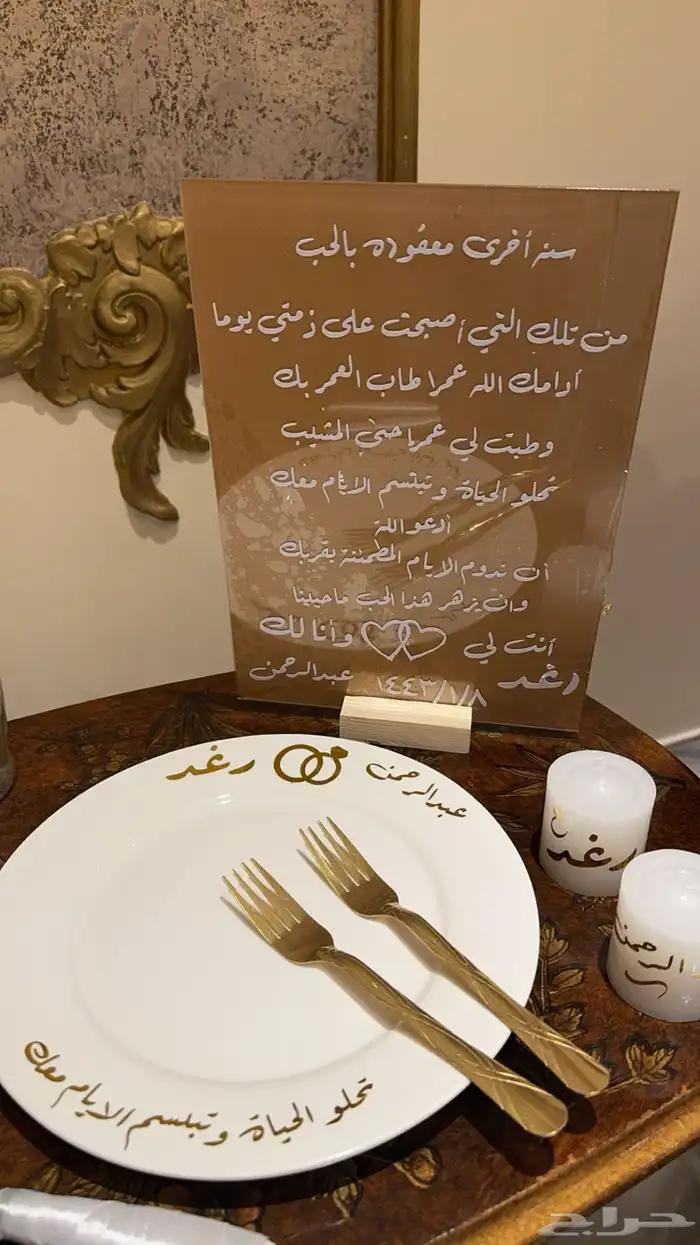 سنه أخرى معقوده بالحب
من تلك التي أصبحت على ذمتي يوما
أدامك الله عمرا طاب العمر بك
وطبت لي عمرا حتى المشيب
تحلو الحياة وتبتسم الايام معك
أدعو الله
أن تدوم الايام المطمئنة بقربك
وان يزهر هذا الحب ماحيينا
أنت لي وأنا لك
رغد ١٤٤٣/١/٨ عبدالرحمن
عبدالرحمن رغد
رغد
الرحمن
تحلو الحياة وتبتسم الايام معك
حراج